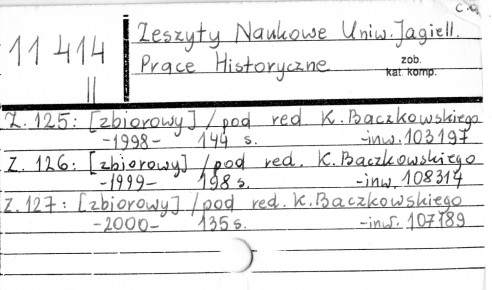 c.d.
11 414
II
Zeszyty Naukowe Uniw. Jagiell.
Prace Historyczne
zob.
kat. komp.
Z. 125: [zbiorowy] / pod red K. Baczkowskiego
-1998- 144 s. -inw. 103197
Z. 126: [zbiorowy] / pod red. K. Baczkowskiego
-1999- 198 s. -inw. 108314
Z. 127: [zbiorowy] / pod red. K. Baczkowskiego
-2000- 135 s. -inw. 107189